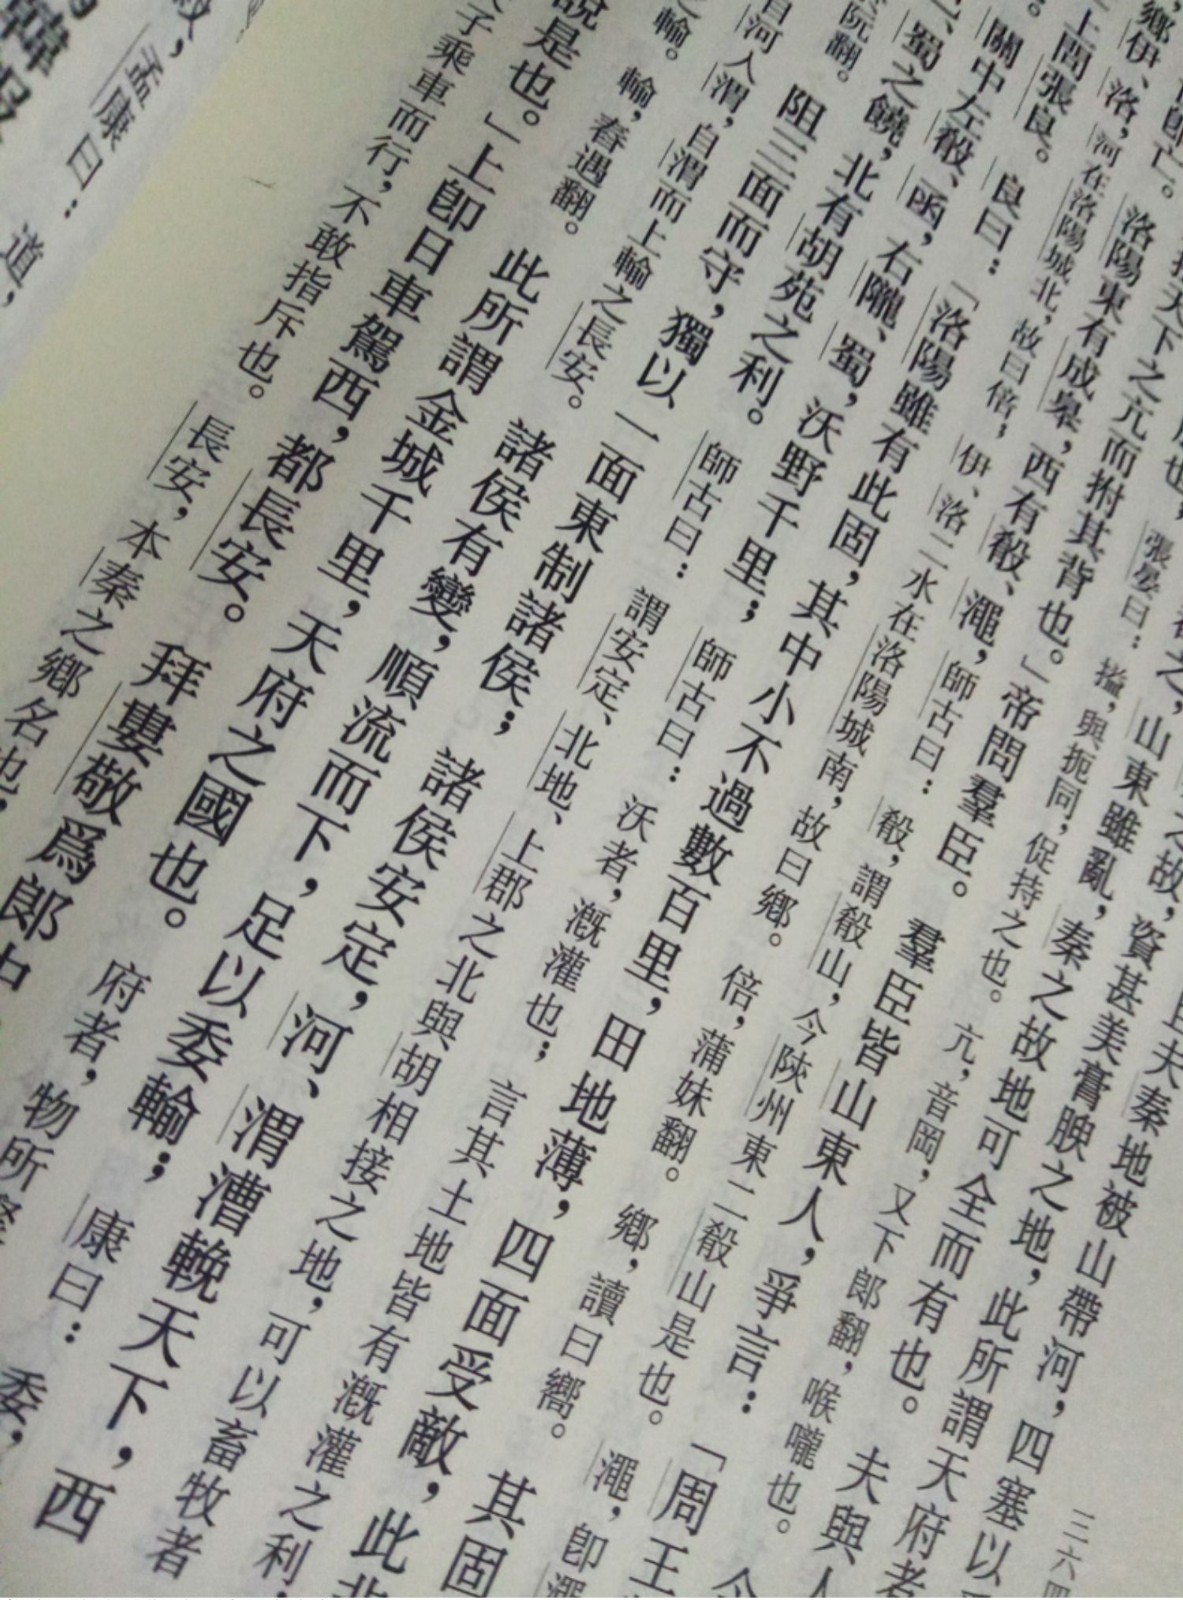 三六四
夫秦地被山帶河，四塞以
之故，資甚美膏腴之地，此所謂天府者
之，山東雖亂，秦之故地可全而有也。夫與人
張晏曰：搤，與扼同，促持之也。亢，音岡，又下郎翻，喉嚨也。
天下之亢而拊其背也。」帝問羣臣。羣臣皆山東人，爭言：「周王
亡。洛陽東有成皋，西有殽、澠，師古曰：殽，謂殽山，今陝州東二殽山是也。澠，卽澠
鄉伊、洛，河在洛陽城北，故曰倍，伊、洛二水在洛陽城南，故曰鄉。倍，蒲妹翻。鄉，讀曰嚮。其固
上問張良。良曰：「洛陽雖有此固，其中小不過數百里，田地薄，四面受敵，此非
關中左殽、函，右隴、蜀，沃野千里；師古曰：沃者，漑灌也；言其土地皆有漑灌之利，
蜀之饒，北有胡苑之利。師古曰：謂安定、北地、上郡之北與胡相接之地，可以畜牧者
阮翻。阻三面而守，獨以一面東制諸侯；諸侯安定，河、渭漕輓天下，西
自河入渭，自渭而上輸之長安。諸侯有變，順流而下，足以委輸；康曰：委，
之輸。輸，舂遇翻。此所謂金城千里，天府之國也。府者，物所聚
說是也。」上卽日車駕西，都長安。拜婁敬爲郎中
子乘車而行，不敢指斥也。長安，本秦之鄉名也，
孟康曰：道，